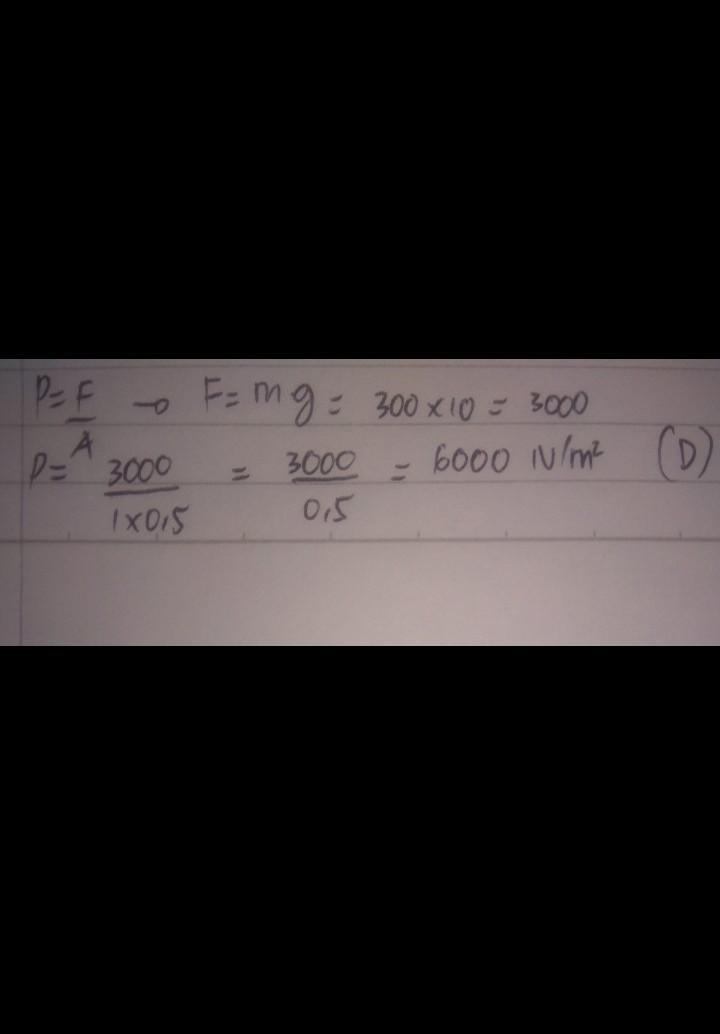 P = F/A → F = mg = 300 × 10 = 3000
P = 3000/1×0,5 = 3000/0,5 = 6000 N/m² (D)